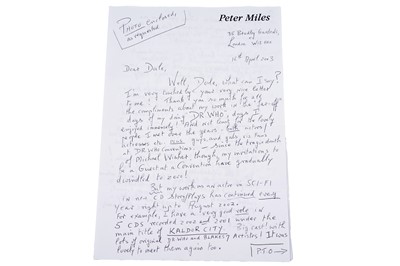 PHOTO enclosed,
as requested
Peter Miles
Gardens,
London W12
10th April 2003
Dear Dale,
Well, Dale, what can I say?
I'm very sorry
your very nice letter
to me! Thank you so much for all
the compliments about my work in the far-off
days of my doing DR WHO, days I
enjoyed immensely! And not least for the lovely
people I met over the years - both actors/
actresses etc and guys and gals
at DR WHO Conventions. - since the tragic death
of Michael Wisher, though, my invitations to
be a Guest at a Convention have gradually
dwindled to once!
But my work as an actor in SCI-FI
in new CD Story/Plays has continued
right up to August 2002.
for example, I have a very good role in
5 CDS recorded 2001 and 2002 under the
main title of KALDOR CITY. Big cast! with
lots of original DR WHO and BLAKES 7 Artistes! It was
lovely to meet them again too.
P.T.O